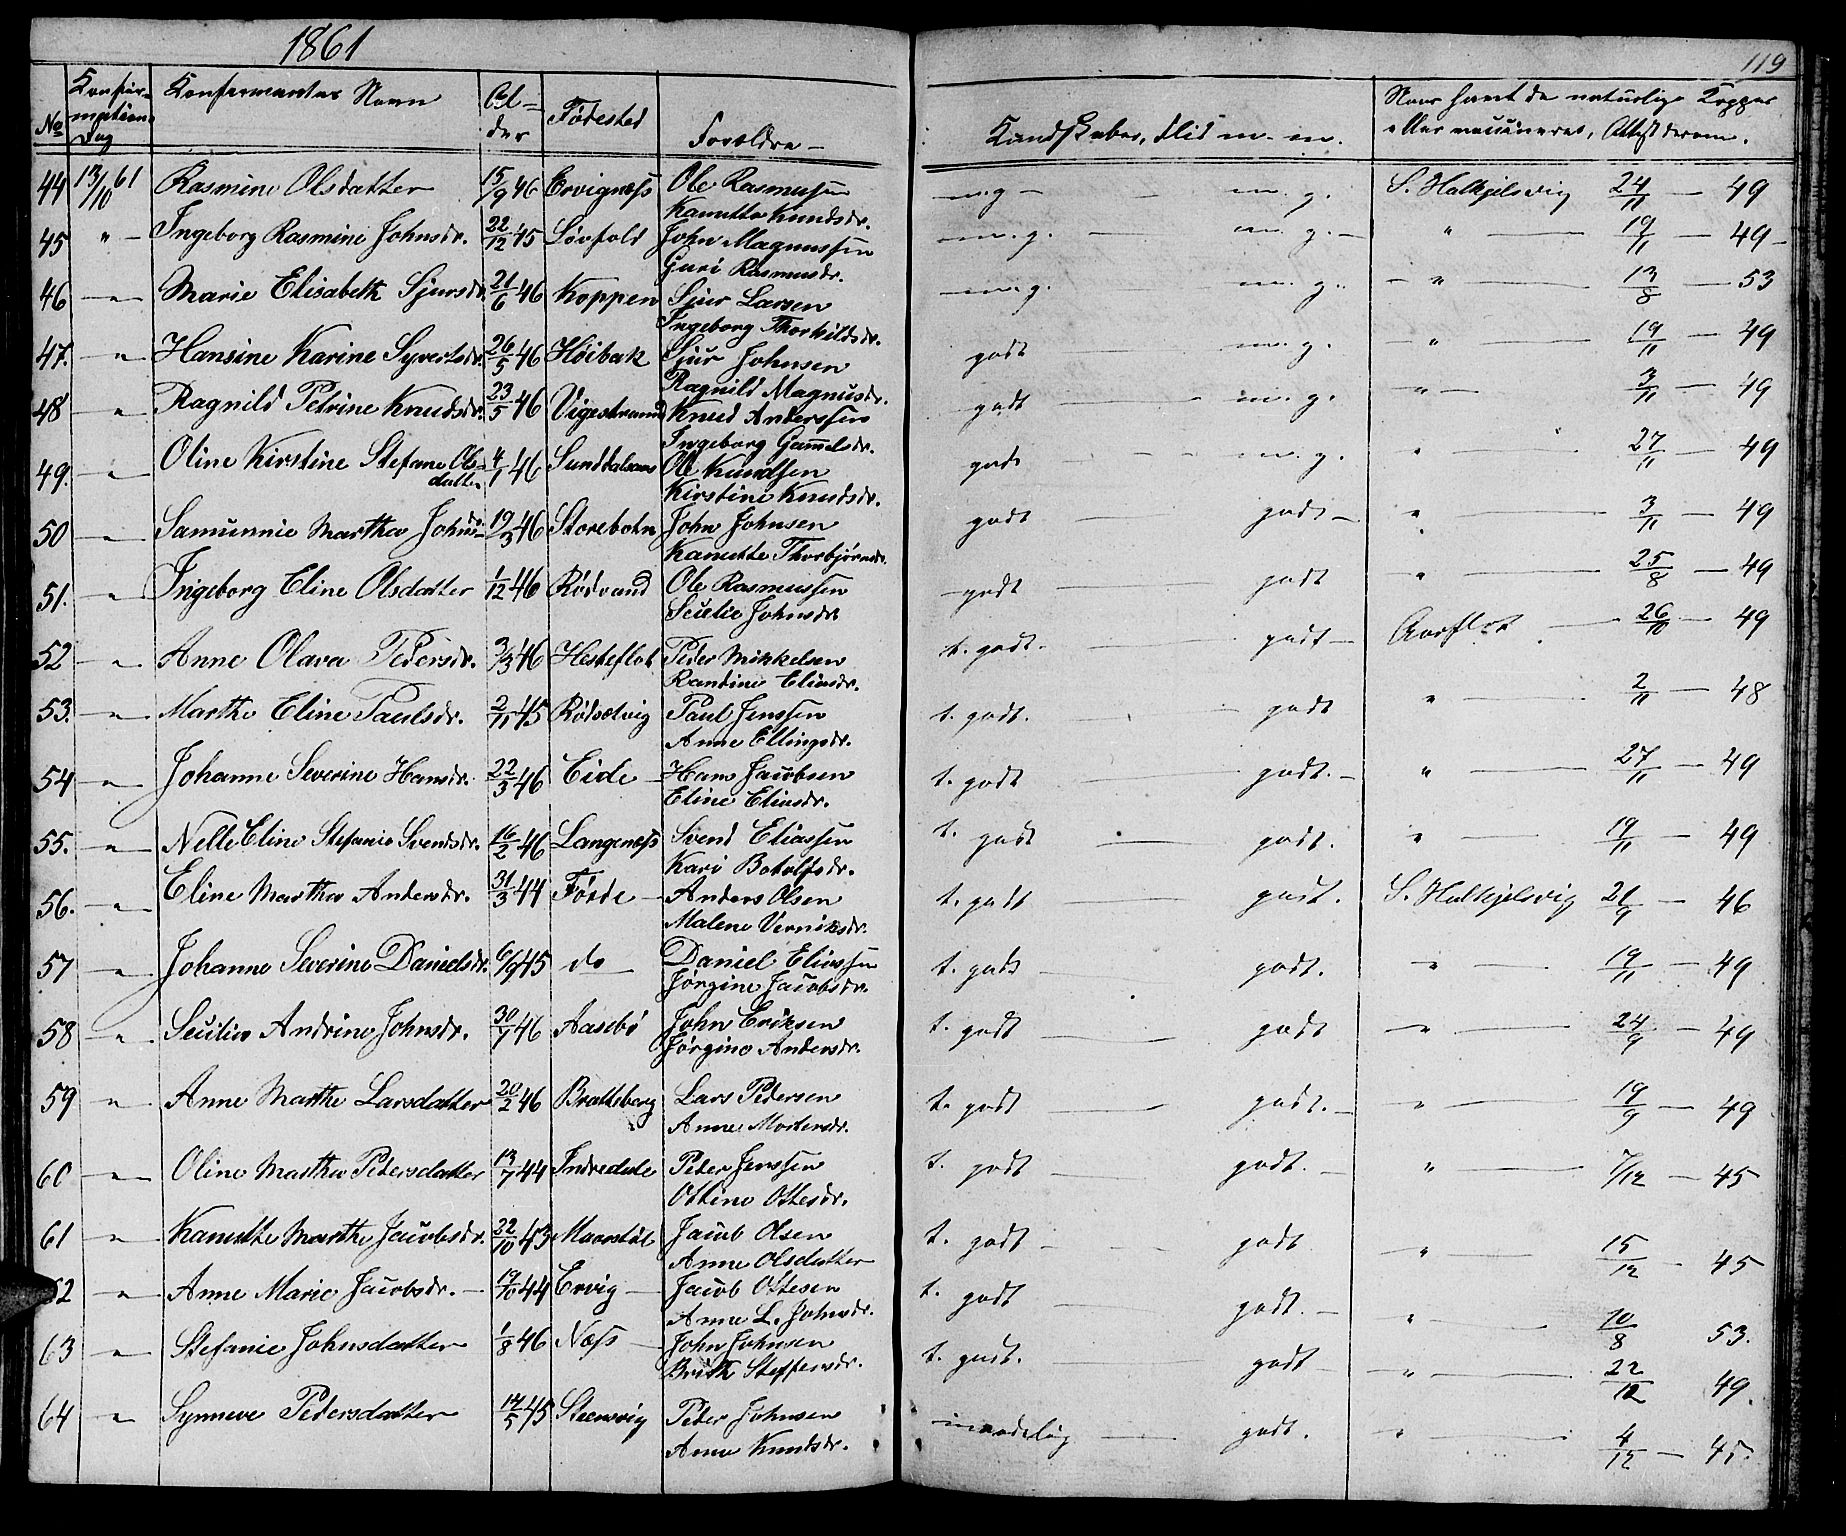 1861
119
No Konfirmations Dag Konfirmantes Navn Alder Fødested Forældre Kundskaber, Flid m. m. Naar havt de naturlige Kopper
eller vaccineret, Attest derom.
44 13/10 61 Rasmine Olsdatter 15/9 46 Ervignæss Ole Rasmussen m.g. — m. g. S. Halkjelsvig 24/11 — 49
Kanutte Knudsdr.
45 " Ingeborg Rasmine Johnsdr. 22/12 45 Løvfold John Magnussen m. g. — m. g. — " 19/11 — 49
Guri Rasmusdr.
46 " Marie Elisabeth Sjursdr. 21/6 46 Koppen Sjur Larsen m. g. m. g. " 13/8 — 53
Ingeborg Thorkildsdr.
47. " Hansine Karine Syvertsdr. 26/5 46 Høibak Sjur Johnsen godt — m. g. " 19/11 — 49
Ragnild Magnusdr.
48 " Ragnild Petrine Knudsdr. 23/5 46 Vigestrand Knud Anderssen godt — m. g. " 3/11 — 49
Ingeborg Gammelsdr.
49. " Oline Kirstine Stefane Ols- 4/1 46 Ole Knudsen godt m. g. " 27/11 — 49
datter Kirstine Knudsdr.
50 " Martha Johnsdr. 19/3 46 Storebotn John Johnsen godt godt — " 3/11 — 49
Kanutte Thorbjørnsdr.
51. " Ingeborg Eline Olsdatter 1/12 46 Rødvand Ole Rasmussen godt — godt " 25/8 — 49
Johnsdr.
52 " Anne Olava Pedersdr. 3/3 46 Hesteflot Peder Mikkelsen t. godt. godt — Aarflot 26/10 — 49
Randine Eliasdr.
53. " Marthe Eline Paulsdr. 2/11 45 Rødsætvig Paul Jenssen t. godt. godt " 2/11 — 48
Anne Ellingsdr.
54 " Johanne Severine Hansdr. 22/3 46 Eide Hans Jacobsen t. godt godt. — " 27/11 — 49
Eline Eliasdr.
55. " Nelle Eline Stefanie Svendsdr. 16/2 46 Langenæss Svend Eliassen t. godt — godt. " 19/11 — 49
Kari Botolfsdr.
56. " Eline Martha Andersdr. 31/3 44 Førde Anders Olsen t. godt godt. S. Halkjelsvig 21/9 — 46
Malene
57 " Johanne Severine Danielsdr. 6/9 45 do Daniel Eliassen t. godt godt. " 19/11 — 49
Jørgine Jacobsdr.
58 " Andrine Johnsdr. 30/7 46 Aasebø John Eriksen t. godt godt " 24/9 — 49
Jørgine Andersdr.
59 " Anne Marthe Larsdatter 20/2 46 Bratteberg Lars Pedersen t. godt godt. — " 19/9 — 49
Anne Mortensdr.
60 " Oline Martha Pedersdatter 13/7 44 Indredale Peder Jenssen t. godt godt. — " 7/12 — 45
Ottine Ottesdr.
61 " Kanutte Marthe Jacobsdr. 22/10 43 Maarstøl Jacob Olsen t. godt godt " 15/12 — 45
Anne Olsdatter
62 " Anne Marie Jacobsdr. — 19/10 44 Ervig Jacob Ottesen t. godt godt. — " 10/8 53.
Anne L. Johnsdr.
63 " Stefanie Johnsdatter 1/8 46 Næss John Johnsen t. godt. godt " 22/12 49.
Brith Steffensdr.
64 " Synneve Pedersdatter 14/5 45 Steensvig Peder Johnsen maadelig godt. " 4/12 — 45.
Anna Knudsdr.